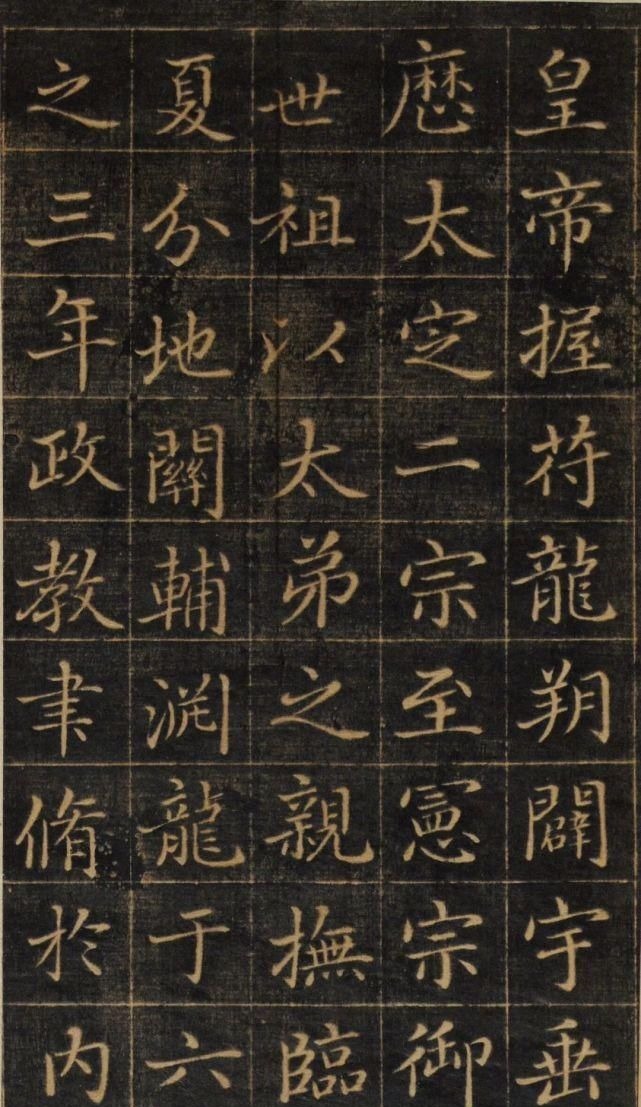 皇帝握符龍朔闢宇垂
歷太定二宗至憲宗御
世祖以太弟之親撫臨
夏分地關輔淵龍于六
之三年政教聿脩於內